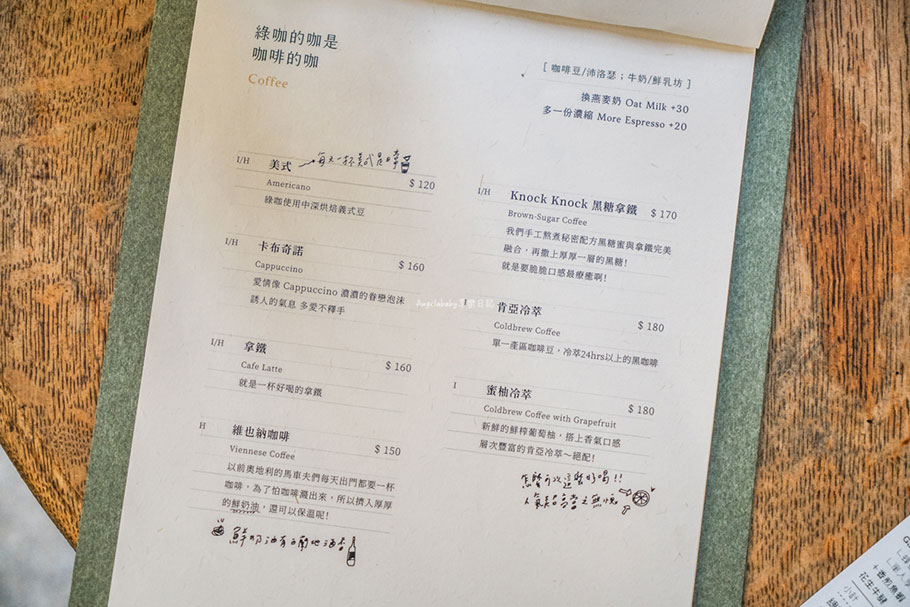 綠咖的咖是
咖啡的咖
Coffee
[ 咖啡豆/沛洛瑟；牛奶/鮮乳坊 ]
換燕麥奶 Oat Milk +30
多一份濃縮 More Espresso +20
I/H 美式 每天一杯美式是日常
Americano $ 120
綠咖使用中深烘焙義式豆
I/H 卡布奇諾
Cappuccino $ 160
愛情像 Cappuccino 濃濃的眷戀泡沫
誘人的氣息 多愛不釋手
I/H 拿鐵
Cafe Latte $ 160
就是一杯好喝的拿鐵
H 維也納咖啡
Viennese Coffee $ 150
以前奧地利的馬車夫們每天出門都要一杯
咖啡，為了怕咖啡濺出來，所以擠入厚厚
的鮮奶油，還可以保溫呢!
鮮奶油有白蘭地酒香
I/H Knock Knock 黑糖拿鐵 $ 170
Brown-Sugar Coffee
我們手工熬煮秘密配方黑糖蜜與拿鐵完美
融合，再撒上厚厚一層的黑糖!
就是要脆脆口感最療癒啊!
I 肯亞冷萃
Coldbrew Coffee $ 180
單一產區咖啡豆，冷萃24hrs以上的黑咖啡
I 蜜柚冷萃
Coldbrew Coffee with Grapefruit $ 180
新鮮的鮮榨葡萄柚，搭上香氣口感
層次豐富的肯亞冷萃～絕配!
怎麼可以這麼好喝!!
Angelababy享樂日記
花生牛腱
小計